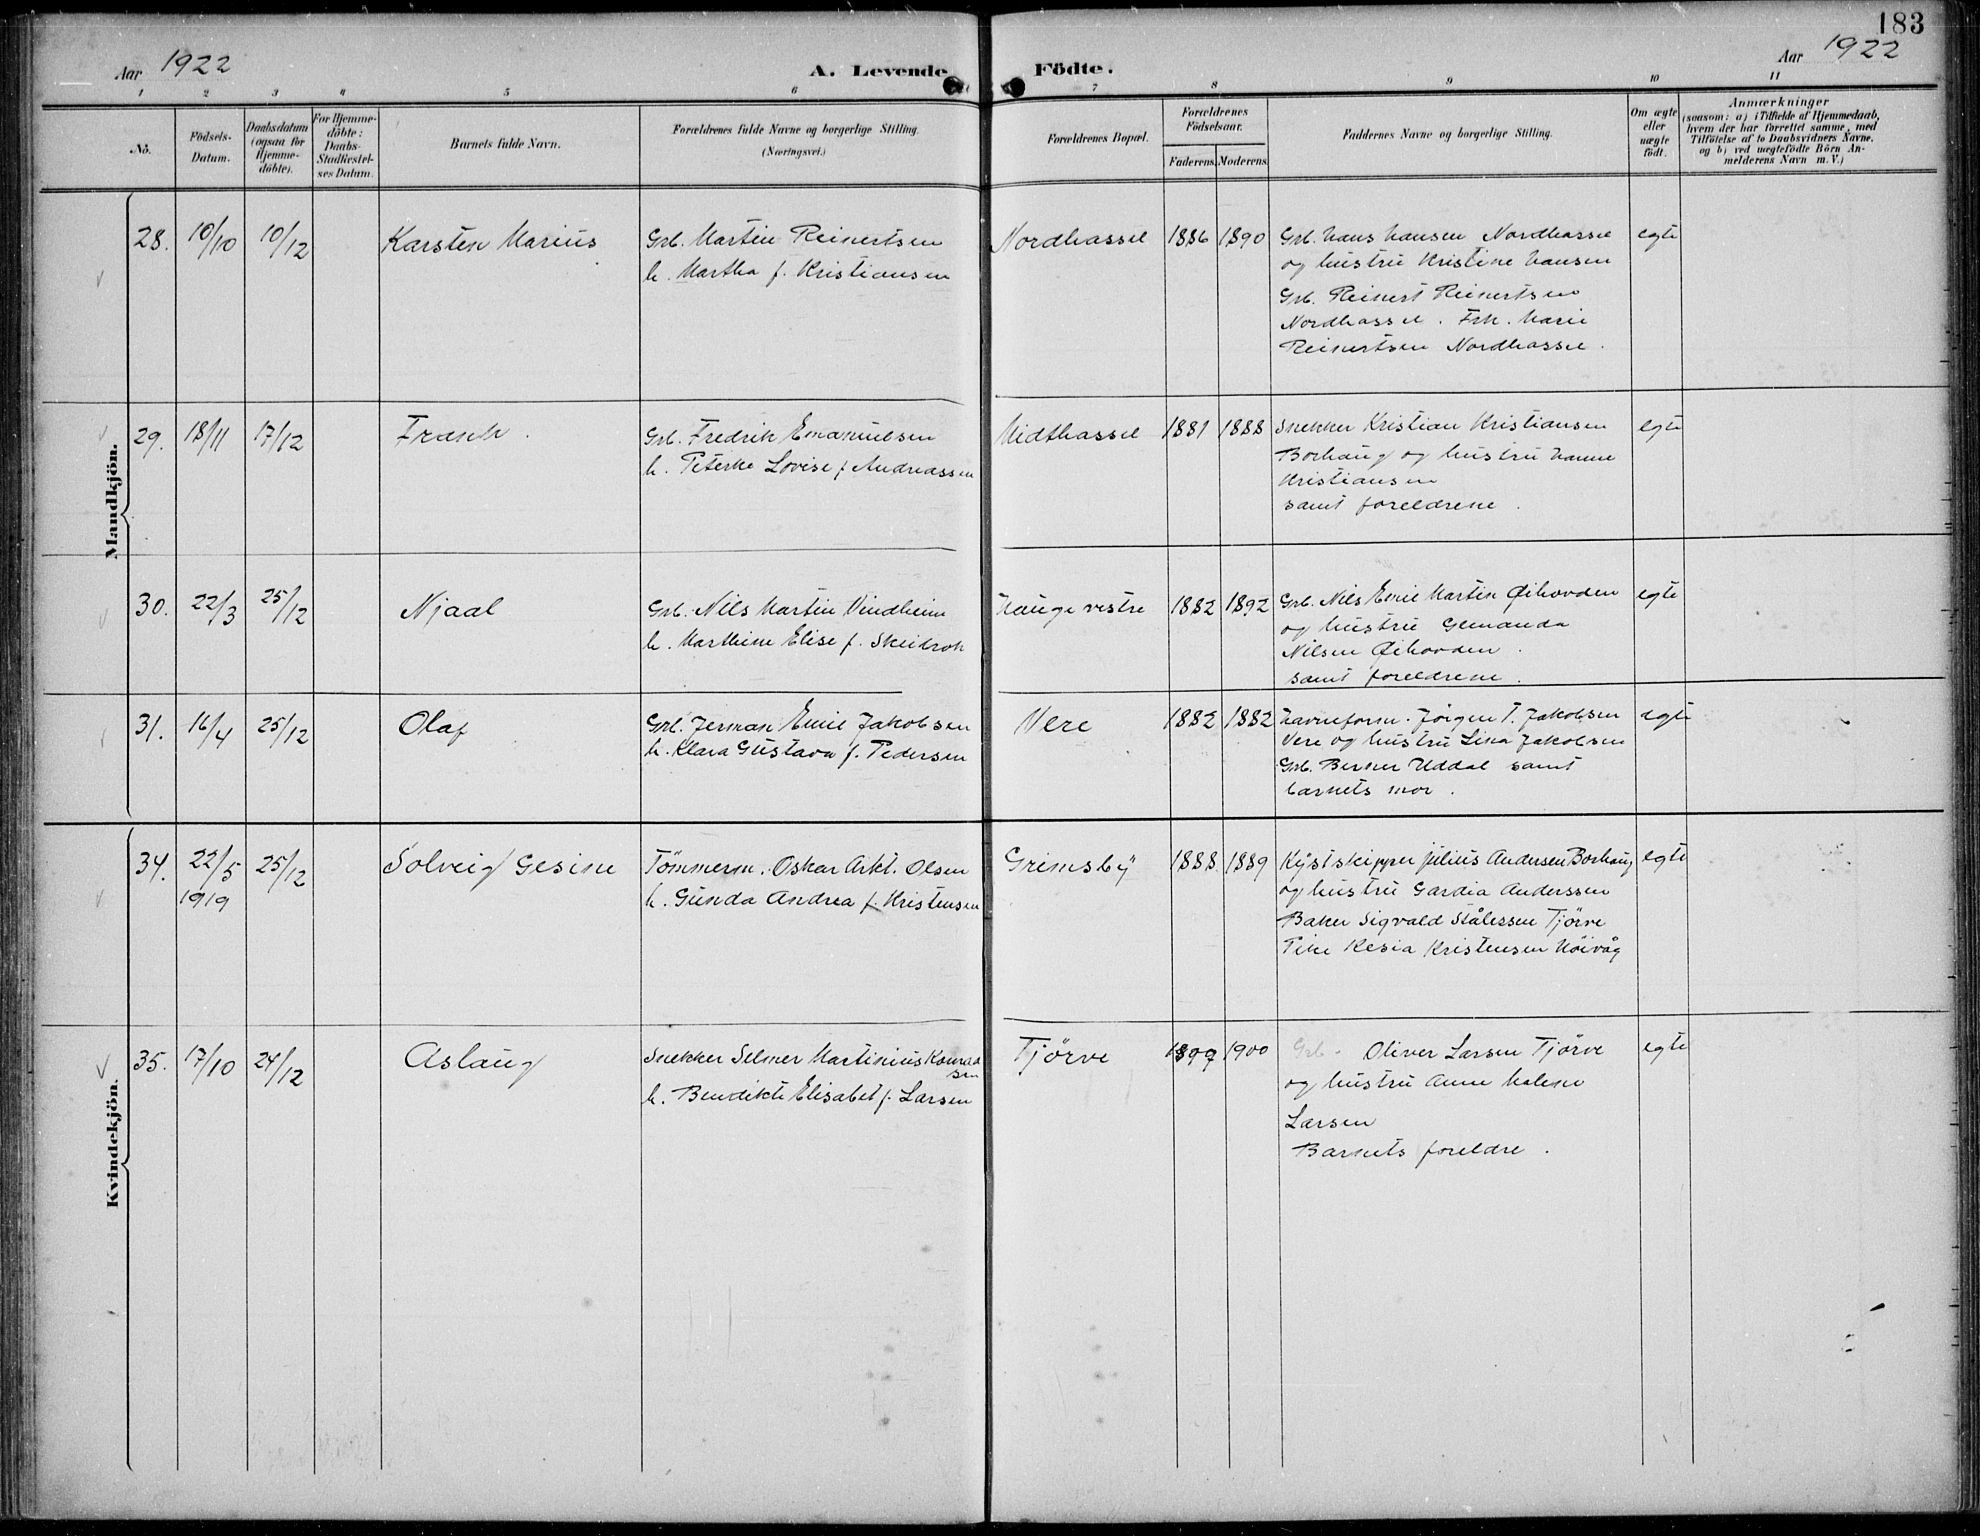 183
Aar 1922
A. Levende Födte.
Aar 1922
1 2 3 4 5 6 7 8 9 10 11
No.
Födsels-
Datum.
Daabsdatum
(ogsaa for
Hjemme-
döbte).
For Hjemme-
döbte:
Daabs-
Stadfæstel-
ses Datum.
Barnets fulde Navn.
Forældrenes fulde Navne og borgerlige Stilling.
(Næringsvei.)
Forældrenes Bopæl.
Forældrenes
Födselsaar.
Faderens. Moderens.
Faddernes Navne og borgerlige Stilling.
Om ægte
eller
uægte
födt.
Anmærkninger
(saasom: a) i Tilfælde af Hjemmedaab,
hvem der har forrettet samme, med
Tilföielse af to Daabsvidners Navne,
og b) ved uægtefödte Börn An-
melderens Navn m. V.)
Mandkjön.
28. 10/10 10/12 Karsten Marius
Grb. Martin Reinertsen
h. Martha f. Kristiansen
Nordhassel 1886 1890
Grb. Hans Hansen Nordhassel
og hustru Kristine Hansen
Grb. Reinert Reinertsen
Nordhassel. Frk. Marie
Reinertsen Nordhassel.
egte
29. 18/11 17/12 Frank.
Grb. Fredrik Emanuelsen
h. Peterke Lovise f. Andreassen
Midthassel 1881 1888
Snekker Kristian Kristiansen
Borhaug og hustru Hanne
Kristiansen
samt foreldrene.
egte
30. 22/3 25/12 Njaal
Grb. Nils Martin Vindheim
h. Marthine Elise f. Skeidrok
Hauge vestre 1882 1892
Grb. Nils Emil Martin Øihovden
og hustru Glemanda
Nilsen Øihovden.
samt foreldrene.
egte
31. 16/4 25/12 Olaf
Grb. Jerman Emil Jakobsen
h. Klara Gustava f. Pedersen
Vere 1882 1882
Havneform. Jørgen T. Jakobsen
Vere og hustru Lina Jakobsen
Grb. Berner Uddal samt
barnets mor.
egte
Kvindekjön.
34. 22/5 1919 25/12 Solveig Gesine
Tömmerm. Oskar Arkt. Olsen
h. Gunda Andrea f. Kristensen
Grimsby 1888 1889
Kystskipper Julius Andersen Borhaug
og hustru Gardia Anderssen
Baker Sigvald Stålessen Tjörve
Pike Kesia Kristensen Höivåg
egte
35. 17/10 24/12 Aslaug
Snekker Selmer Martinius Konrad
sen
h. Bendikte Elisabet f. Larsen
Tjörve 1899 1900
Grb. Oliver Larsen Tjörve
og hustru Anne Malene
Larsen
Barnets foreldre.
egte